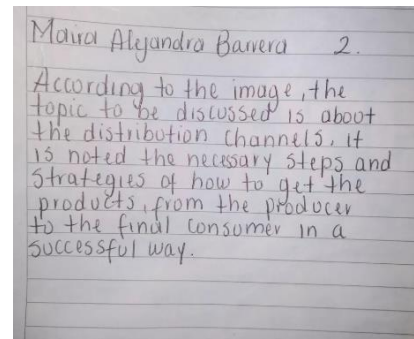 Maira Alejandra Barrera 2.
According to the image, the
topic to be discussed is about
the distribution channels, it
is noted the necessary steps and
strategies of how to get the
products, from the producer
to the final consumer in a
successful way.